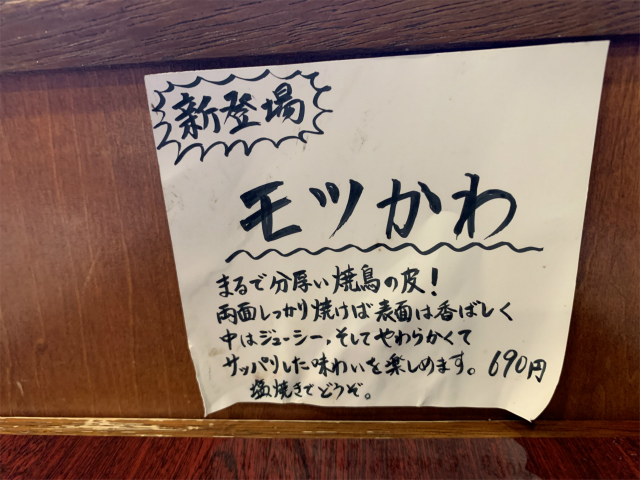 新登場
モツかわ
まるで分厚い焼鳥の皮！
両面しっかり焼けば表面は香ばしく
中はジューシー、そしてやわらかくて
サッパリした味わいを楽しめます。690円
塩焼きでどうぞ。